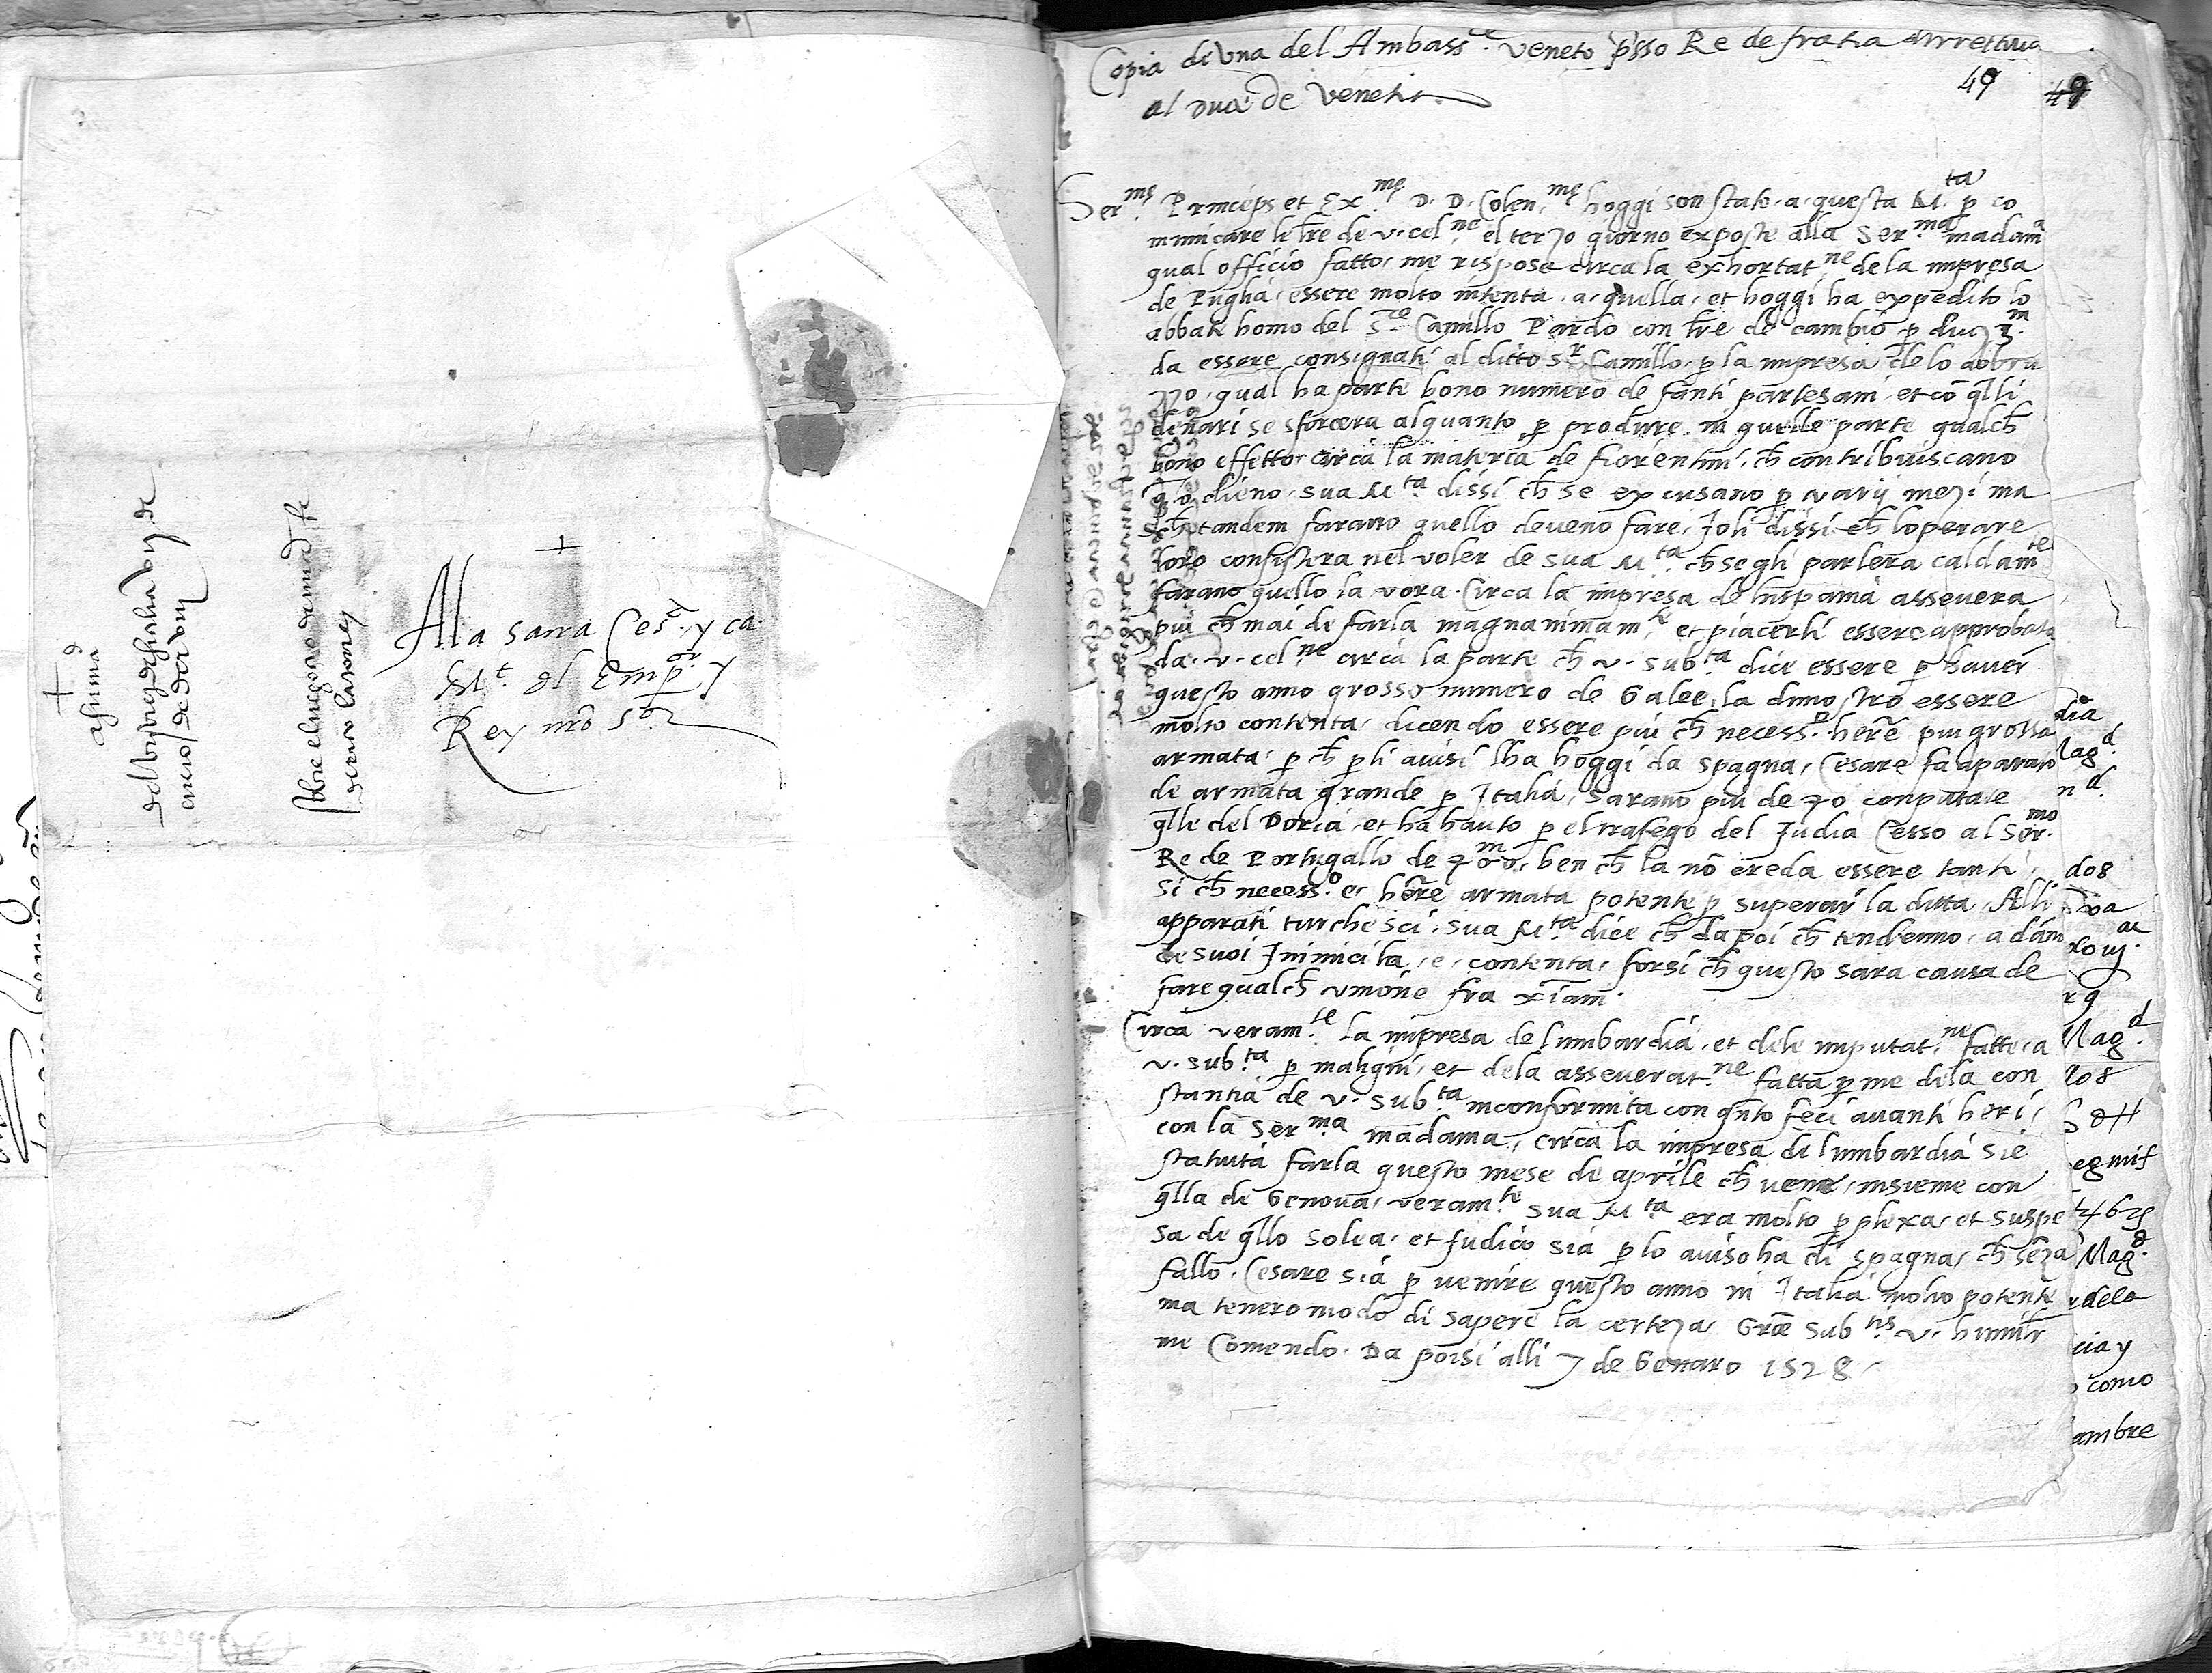 Ala sacra Ces.ª y ca.
M.t del Emp.or y
Rey nr̃o S.or
Copia de una del Ambass.re veneto p̃sso Re de fratia dirrettiva
49
al Duca de Venetia
Ser.me Princeps et Ex.me D. D. Colen.me hoggi son stato a questa M.ta ꝑ co
municare le lr̃e de v. cel.ne el terzo giorno exposte alla Ser.ma madama
qual officio fatto, me rispose circa la exhortat.ne de la impresa
de Puglia, essere molto intenta a quella, et hoggi ha expedito lo
abbate homo del S.re Camillo Pardo con lr̃e de cambio ꝑ duc.
da essere consignati al ditto S.r Camillo ꝑ la impresa de lo abbru
zzo, qual ha parte bono numero de fanti partesani, et cõ q̃lli
denari se sforcera alquanto ꝑ produre in quelle parte qualch̃
bono effetto, circa la materia de fiorentini, ch̃ contribuiscano
q̃to dieno, sua M.ta dissi ch̃ se excusano ꝑ varij mezi ma
ch̃ tandem farano quello deveno fare, Joli dissi ch̃ loperare
loro consistera nel voler de sua M.ta ch̃ se gli parlera caldam.te
farano quello la vora. Circa la impresa de hispania assevera
piu ch̃ mai di farla magnanimam.te et piacerli essere approbata
da v. cel.ne circa la parte ch̃ v. sub.ta dice essere ꝑ haver
questo anno grosso numero de Galee, la dimostro essere
molto contenta, dicendo essere piu ch̃ necess.o her̃e piu grossa
armata, ꝑ ch̃ ꝑ li avisi lha hoggi da spagna, Cesare fa aparato
de armata grande ꝑ Italia, sarano piu de 70 conputate
q̃lle del Doria, et ha hauto ꝑ el trafego del Judia Cesso al Ser.mo
Re de Portugallo de 700.m, ben ch̃ la nõ creda essere tanti,
si ch̃ necess.o e, her̃e armata potente ꝑ superar la ditta. Alli
apparati turchesci, sua M.ta dice ch̃ dapoi ch̃ tendenno a dam
de suoi Inimici la e contenta, forsi ch̃ questo sara causa de
fare qualch̃ unione fra xr̃iam.
Circa veram.te la impresa de lumbardia, et dele imputat.ne fatte a
v. sub.ta ꝑ maligni, et dela asseverat.ne fatta ꝑ me dela con
stantia de v. sub.ta inconformita con q̃nto feci avanti heri,
con la Ser.ma madama, circa la impresa di lumbardia sie
statuta farla questo mese de aprile ch̃ vene, insieme con
q̃lla de Genova, veram.te sua M.ta era molto ꝑplexa et suspe
sa de q̃llo solea, et Judico sia ꝑ lo aviso ha di spagna, ch̃ senza
fallo, Cesare sia ꝑ venire questo anno in Italia molto potente
ma tenero modo di sapere la certeza, Gr̃ae Sub.tis v. humilr̃
me Comendo. Da poisi alli 7 de Genaro 1528